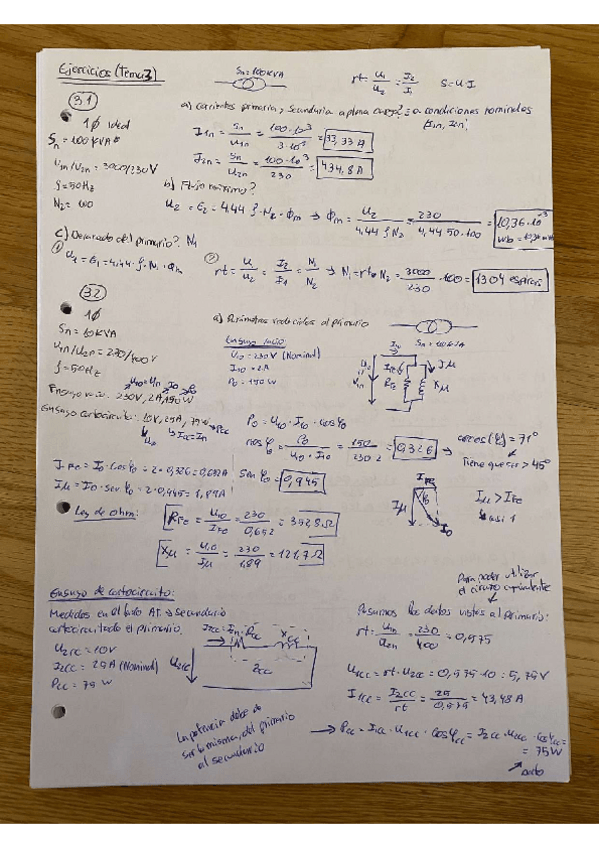 Ejercicios (Tema 3)
Sn = 100KVA
rt = U1/U2 = I2/I1 S = U·I
3.1
1Φ ideal
Sn = 100KVA
U1n/U2n = 3000/230V
f = 50Hz
N2 = 100
a) corrientes primaria y secundaria a plena carga? = a condiciones nominales
I1n, I2n
I1n = Sn/U1n = 100·10³/3·10³ = 33,33A
I2n = Sn/U2n = 100·10³/230 = 434,8A
b) Flujo máximo?
U2 = E2 = 4,44 f·N2·Φm → Φm = U2/4,44 f N2 = 230/4,44·50·100 = 10,36·10⁻³ Wb
c) Devanado del primario? N1
① U1 = E1 = 4,44·f·N1·Φm
② rt = U1/U2 = I2/I1 = N1/N2 → N1 = rt·N2 = 3000/230·100 = 1304 espiras
3.2
1Φ
Sn = 10KVA
f = 50Hz
a) Parámetros reducidos al primario
Sn = 10KVA
Ensayo vacío
U10 = 230V (Nominal)
I10 = 2A
P0 = 150W
U10 = Un I0 P0
Ensayo vacío: 230V, 2A, 150W
Ensayo cortocircuito: 10V, 25A, 75W → Pcc
Icc = In
P0 = U10·I10·cosφ0
cosφ0 = P0/U10·I10 = 150/230·2 = 0,326 → arccos(φ) = 71°
Tiene que ser > 45°
IFe = I0·cosφ0 = 2·0,326 = 0,652A
Iμ = I0·senφ0 = 2·0,945 = 1,89A
sen φ0 = 0,945
Iμ > IFe
casi 1
Ley de ohm:
RFe = U10/IFe = 230/0,652 = 352,8Ω
Xμ = U10/Iμ = 230/1,89 = 121,7Ω
Ensayo de cortocircuito:
Medidos en el lado AT → secundario
cortocircuitado el primario.
U2cc = 10V
I2cc = 25A (Nominal)
Pcc = 75W
I2cc = I2n Rcc Xcc
U2cc
Zcc
Para poder utilizar
el circuito equivalente
Pasamos los datos vistos al primario:
rt = U1n/U2n = 230/400 = 0,575
U1cc = rt·U2cc = 0,575·10 = 5,75V
I1cc = I2cc/rt = 25/0,575 = 43,48A
La potencia debe de
ser la misma, del primario
al secundario
→ Pcc = I1cc·U1cc·cosφcc = I2cc·U2cc·cosφcc =
= 75W
dato